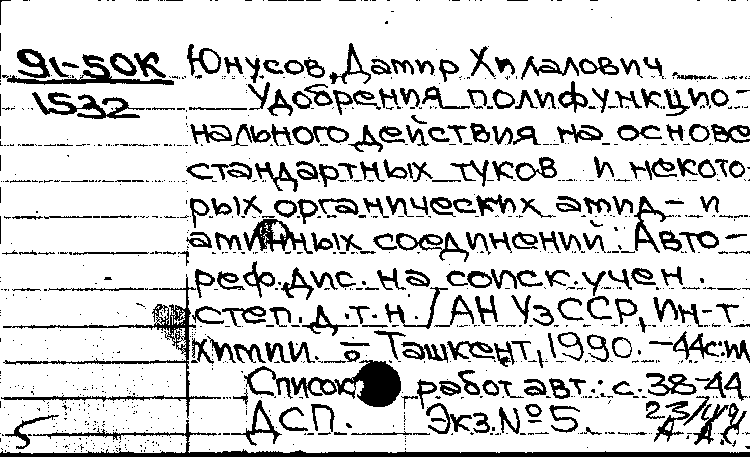 91-50К Юнусов, Дамир Хилалович.
1532 Удобрения полифункцио-
нального действия на основе
стандартных туков и некото
рых органических амид- и
аминных соединений: Авто-
реф. дис. на соиск. учен.
степ. д.т.н. / АН УзССР, Ин-т
химии. - Ташкент, 1990. - 44с;
Список работ авт.: с. 38-44
5 ДСП. Экз. № 5.